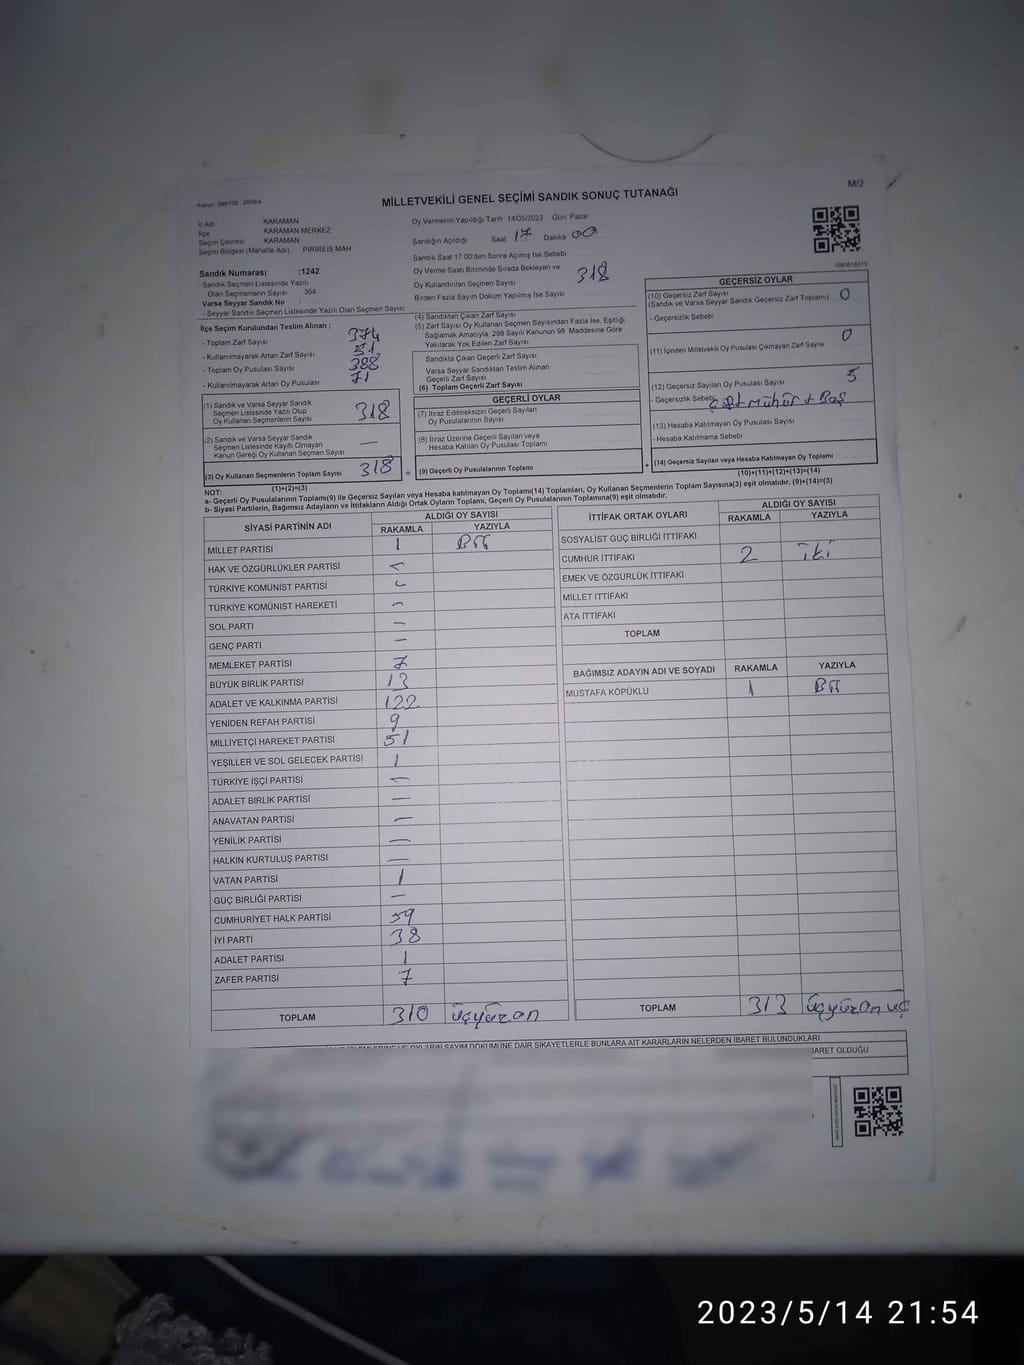 MİLLETVEKİLİ GENEL SEÇİMİ SANDIK SONUÇ TUTANAĞI
M/2
İl Adı KARAMAN
İlçe KARAMAN MERKEZ
Seçim Çevresi KARAMAN
Seçim Bölgesi (Mahalle Adı) PİRİREİS MAH
Sandık Numarası :1242
- Sandık Seçmen Listesinde Yazılı
Olan Seçmenlerin Sayısı 364
Varsa Seyyar Sandık No :
- Seyyar Sandık Seçmen Listesinde Yazılı Olan Seçmen Sayısı
Oy Vermenin Yapıldığı Tarih 14/05/2023 Gün Pazar
Sandığın Açıldığı Saat 17 Dakika 00
Sandık Saat 17 00'den Sonra Açımış İse Sebebi
Oy Verme Saati Bitiminde Sırada Bekleyen ve
Oy Kullandırılan Seçmen Sayısı 318
Birden Fazla Sayım Döküm Yapılmış İse Sayısı
İlçe Seçim Kurulundan Teslim Alınan :
- Toplam Zarf Sayısı 374
- Kullanılmayarak Artan Zarf Sayısı 51
- Toplam Oy Pusulası Sayısı 388
- Kullanılmayarak Artan Oy Pusulası 71
(1) Sandık ve Varsa Seyyar Sandık
Seçmen Listesinde Yazılı Olup
Oy Kullanan Seçmenlerin Sayısı 318
(2) Sandık ve Varsa Seyyar Sandık
Seçmen Listesinde Kayıtlı Olmayan
Kanun Gereği Oy Kullanan Seçmen Sayısı —
(3) Oy Kullanan Seçmenlerin Toplam Sayısı 318
(1)+(2)=(3)
(4) Sandıktan Çıkan Zarf Sayısı
(5) Zarf Sayısı Oy Kullanan Seçmen Sayısından Fazla İse, Eşitliği
Sağlamak Amacıyla, 298 Sayılı Kanunun 98. Maddesine Göre
Yakılarak Yok Edilen Zarf Sayısı
Sandıkta Çıkan Geçerli Zarf Sayısı
Varsa Seyyar Sandıktan Teslim Alınan
Geçerli Zarf Sayısı
(6) Toplam Geçerli Zarf Sayısı
GEÇERLİ OYLAR
(7) İtiraz Edilmeksizin Geçerli Sayılan
Oy Pusulalarının Sayısı
(8) İtiraz Üzerine Geçerli Sayılan veya
Hesaba Katılan Oy Pusulası Toplamı
(9) Geçerli Oy Pusulalarının Toplamı
GEÇERSİZ OYLAR
(10) Geçersiz Zarf Sayısı 0
(Sandık ve Varsa Seyyar Sandık Geçersiz Zarf Toplamı)
- Geçersizlik Sebebi
(11) İçinden Milletvekili Oy Pusulası Çıkmayan Zarf Sayısı 0
(12) Geçersiz Sayılan Oy Pusulası Sayısı 5
- Geçersizlik Sebebi Çift Mühür + Boş
(13) Hesaba Katılmayan Oy Pusulası Sayısı
- Hesaba Katılmama Sebebi
(14) Geçersiz Sayılan veya Hesaba Katılmayan Oy Toplamı
(10)+(11)+(12)+(13)=(14)
NOT:
a- Geçerli Oy Pusulalarının Toplamı(9) ile Geçersiz Sayılan veya Hesaba katılmayan Oy Toplamı(14) Toplamları, Oy Kullanan Seçmenlerin Toplam Sayısına(3) eşit olmalıdır. (9)+(14)=(3)
b- Siyasi Partilerin, Bağımsız Adayların ve İttifakların Aldığı Ortak Oyların Toplamı, Geçerli Oy Pusulalarının Toplamına(9) eşit olmalıdır.
SİYASİ PARTİNİN ADI ALDIĞI OY SAYISI
RAKAMLA YAZIYLA
MİLLET PARTİSİ 1 Bir
HAK VE ÖZGÜRLÜKLER PARTİSİ –
TÜRKİYE KOMÜNİST PARTİSİ –
TÜRKİYE KOMÜNİST HAREKETİ –
SOL PARTİ –
GENÇ PARTİ –
MEMLEKET PARTİSİ 7
BÜYÜK BİRLİK PARTİSİ 13
ADALET VE KALKINMA PARTİSİ 122
YENİDEN REFAH PARTİSİ 9
MİLLİYETÇİ HAREKET PARTİSİ 51
YEŞİLLER VE SOL GELECEK PARTİSİ 1
TÜRKİYE İŞÇİ PARTİSİ –
ADALET BİRLİK PARTİSİ –
ANAVATAN PARTİSİ –
YENİLİK PARTİSİ –
HALKIN KURTULUŞ PARTİSİ –
VATAN PARTİSİ 1
GÜÇ BİRLİĞİ PARTİSİ –
CUMHURİYET HALK PARTİSİ 59
İYİ PARTİ 38
ADALET PARTİSİ 1
ZAFER PARTİSİ 7
TOPLAM 310 üçyüzon
İTTİFAK ORTAK OYLARI ALDIĞI OY SAYISI
RAKAMLA YAZIYLA
SOSYALİST GÜÇ BİRLİĞİ İTTİFAKI
CUMHUR İTTİFAKI 2 iki
EMEK VE ÖZGÜRLÜK İTTİFAKI
MİLLET İTTİFAKI
ATA İTTİFAKI
TOPLAM
BAĞIMSIZ ADAYIN ADI VE SOYADI RAKAMLA YAZIYLA
MUSTAFA KÖPÜKLÜ 1 Bir
TOPLAM 313 üçyüzon üç
OYLARIN SAYIM DÖKÜMÜNE DAİR ŞİKAYETLERLE BUNLARA AİT KARARLARIN NELERDEN İBARET BULUNDUKLARI
İBARET OLDUĞU
2023/5/14 21:54